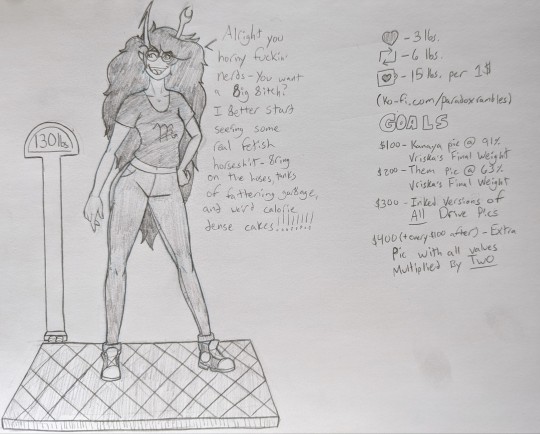 Alright you
horny fuckin'
nerds - You want
a Big Bitch?
I Better start
seeing some
real fetish
horseshit - Bring
on the hoses, tanks
of fattening garbage,
and weird calorie
dense cakes!!!!!!!!
130lbs
- 3 lbs.
- 6 lbs.
- 15 lbs. per 1$
(Ko-fi.com/paradoxrambles)
GOALS
$100 - Kanaya pic @ 91%
Vriska's Final Weight
$200 - Them pic @ 63%
Vriska's Final Weight
$300 - Inked versions of
All Drive Pics
$400 (+ every $100 after) - Extra
Pic with all values
Multiplied By Two